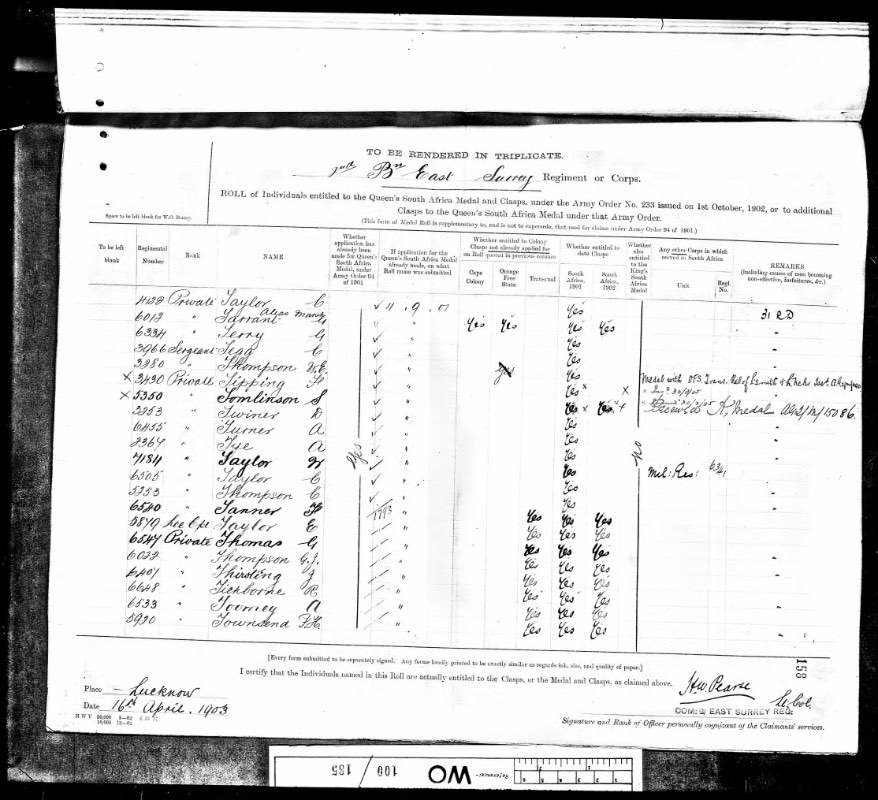 TO BE RENDERED IN TRIPLICATE.
2nd Bn East Surrey Regiment or Corps.
ROLL of Individuals entitled to the Queen's South Africa Medal and Clasps, under the Army Order No. 233 issued on 1st October, 1902, or to additional
Clasps to the Queen's South Africa Medal under that Army Order.
Space to be left blank for W.O. Stamp.
(This form of Medal Roll is supplementary to, and is not to supersede, that used for claims under Army Order 94 of 1901.)
To be left blank
Regimental Number
Rank
NAME
Whether application has already been made for Queen's South Africa Medal, under Army Order 94 of 1901
If application for the Queen's South Africa Medal already made, on what Roll name was submitted
Whether entitled to Colony Clasps not already applied for on Roll quoted in previous column
Cape Colony
Orange Free State
Transvaal
Whether entitled to date Clasps
South Africa, 1901
South Africa, 1902
Whether also entitled to the King's South Africa Medal
Any other Corps in which served in South Africa
Unit
Regl. No.
REMARKS
(including causes of men becoming non-effective, forfeitures, &c.)
4128 Private Taylor C ✓ 11 . 9 . 01 Yes
6012 " Tarrant alias Marsh G ✓ " Yes Yes Yes Yes 31 R.D
6334 " Terry G ✓ " Yes "
3966 Sergeant Tegg C ✓ " Yes "
3280 " Thompson W.E. ✓ " Yes "
× 3430 Private Tipping ✓ " Yes × ×
× 5350 " Tomlinson S ✓ " Yes × Yes ×
2253 " Twiner D ✓ " Yes "
6455 " Turner A ✓ " Yes "
2367 " Tye A ✓ " Yes "
7184 " Taylor W Yes ✓ " Yes no Mil: Res:
6505 " Taylor C ✓ " Yes "
5253 " Thompson C ✓ " Yes "
6540 " Tanner F " Yes Yes Yes "
5879 Lce Cpl Taylor E " Yes Yes Yes "
6547 Private Thomas G " Yes Yes Yes "
6022 " Thompson G.J. " Yes Yes Yes "
6401 " Thirsting J " Yes Yes Yes "
6648 " Tichborne R " Yes Yes Yes "
6533 " Toomey A " Yes Yes Yes "
5920 " Townsend F.H. " Yes Yes Yes "
158
[Every form submitted to be separately signed. Any forms locally printed to be exactly similar as regards ink, size, and quality of paper.]
I certify that the Individuals named in this Roll are actually entitled to the Clasps, or the Medal and Clasps, as claimed above.
Place Lucknow
Date 16th April. 1903
H W V
H W Pearse Lt Col.
COM: 2/ EAST SURREY REG:
Signature and Rank of Officer personally cognizant of the Claimants' services.
WO 100 / 185